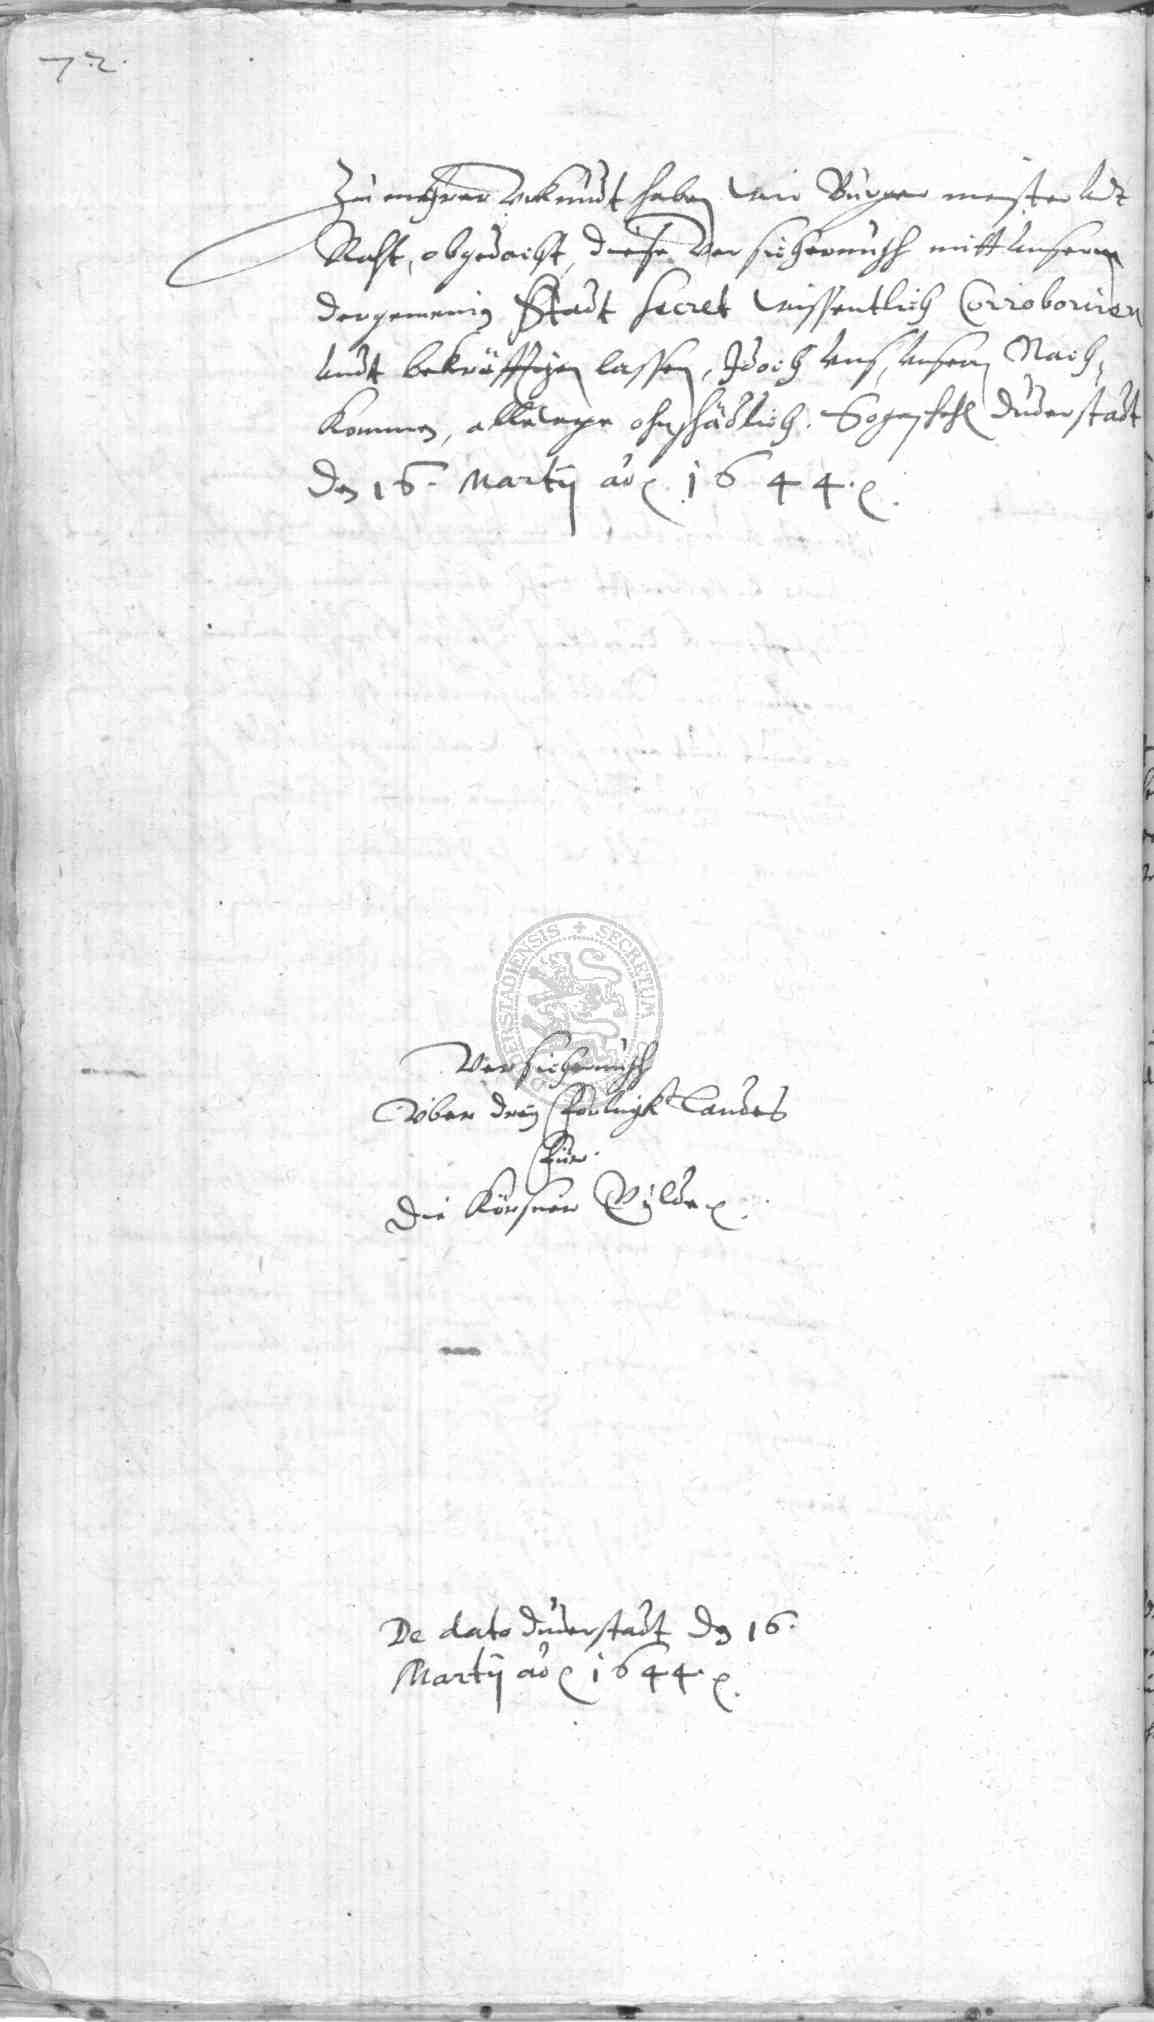 72.
Zu mehrer urkundt haben wir Burger meister undt
Raht, obgedacht, diese Versicherungh mitt unserm
der gemeinen Stadt Secret wissentlich Corroboriren
undt bekräfftigen lassen, Jdoch uns, unsern Nach,
kommen, allewege ohnschädlich. So geschehen Duderstadt
den 16. Martij ao 1644.
DERSTADIENSIS + SECRETUM
Versicherungh
Über dreÿ Landes
Für
Die Körsner Gÿlde
De dato Duderstadt den 16.
Martij ao 1644.